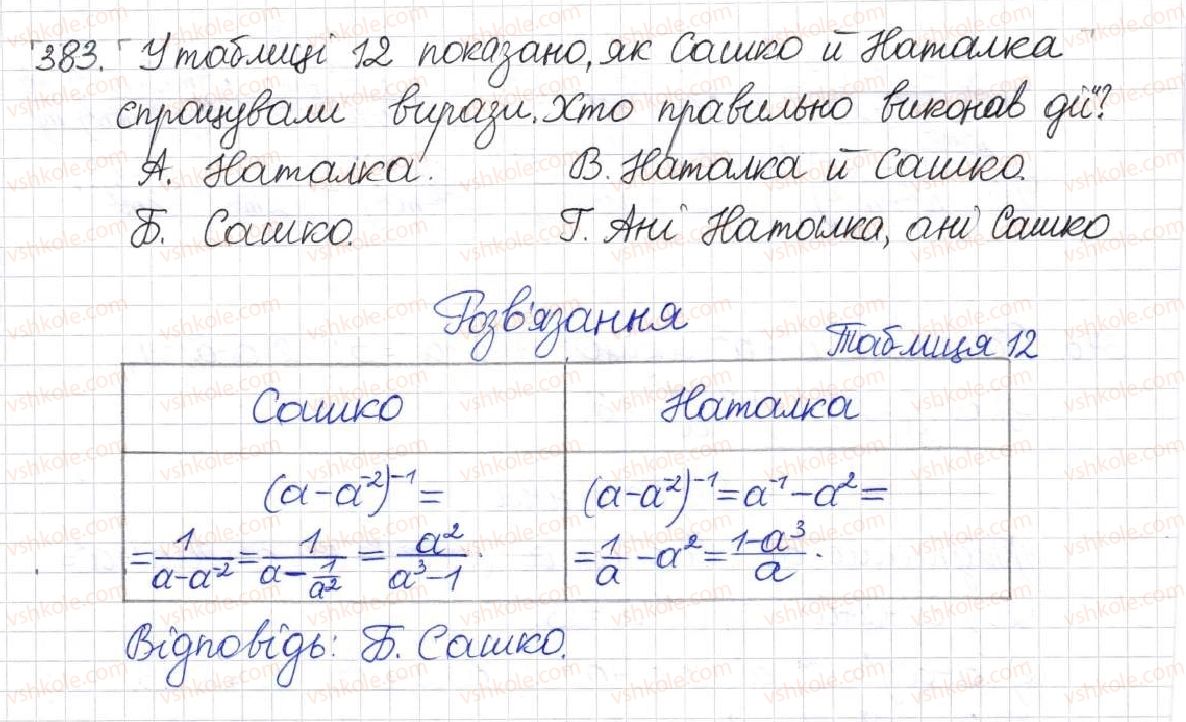 383. У таблиці 12 показано, як Сашко й Наталка
спрощували вирази. Хто правильно виконав дії?
А. Наталка. В. Наталка й Сашко.
Б. Сашко. Г. Ані Наталка, ані Сашко
Розв'язання
Таблиця 12
Сашко Наталка
(a-a⁻²)⁻¹ =
= 1/(a-a⁻²) = 1/(a-1/a²) = a²/(a³-1).
(a-a⁻²)⁻¹ = a⁻¹-a² =
= 1/a - a² = (1-a³)/a.
Відповідь: Б. Сашко.
vshkole.com